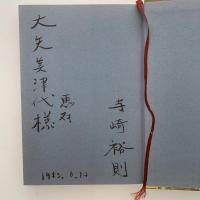 大矢美津代様
恵存
寺崎裕則